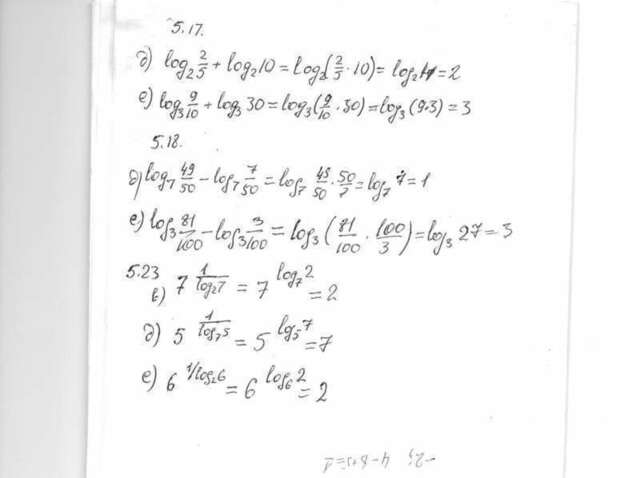 5.17.
д) log₂ 2/5 + log₂10 = log₂(2/5 · 10) = log₂4 = 2
е) log₃ 9/10 + log₃ 30 = log₃(9/10 · 30) = log₃ (9·3) = 3
5.18.
д) log₇ 49/50 − log₇ 7/50 = log₇ 49/50 · 50/7 = log₇ 7 = 1
е) log₃ 81/100 − log₃ 3/100 = log₃ (81/100 · 100/3) = log₃ 27 = 3
5.23
в) 7^(1/log₂7) = 7^(log₇2) = 2
д) 5^(1/log₇5) = 5^(log₅7) = 7
е) 6^(1/log₂6) = 6^(log₆2) = 2